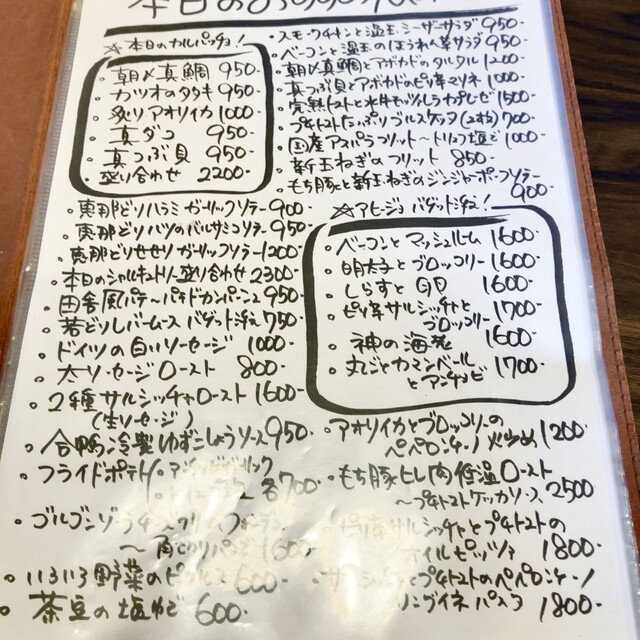 本日のおすすめ
☆本日のカルパッチョ！
・朝〆真鯛 950-
・カツオのタタキ 950-
・炙りアオリイカ 1000
・真ダコ 950-
・真つぶ貝 950-
・盛り合わせ 2200-
・恵那どりハラミガーリックソテー 900-
・恵那どりハツのバルサミコソテー 950-
・恵那どりせせりガーリックソテー 1200-
・本日のシャルキュトリー盛り合わせ 2300-
・田舎風パテ〜パテドカンパーニュ 950-
・若どりレバームース バゲット添え 750-
・ドイツの白いソーセージ 1000-
・太ソーセージロースト 800-
・2種サルシッチャロースト 1600-
(生ソーセージ)
・合鴨冷製ゆずこしょうソース 950-
・フライドポテト
各700-
・ゴルゴンゾーラチーズクリームフォンデュ
〜角切りパンで 1600-
・いろいろ野菜のピクルス 600-
・茶豆の塩ゆで 600-
・スモークチキンと温玉シーザーサラダ 950-
・ベーコンと温玉のほうれん草サラダ 950-
・朝〆真鯛とアボカドのタルタル 1200
・真つぶ貝とアボカドのピリ辛マリネ 1000-
・完熟トマトと水牛モッツァレラカプレーゼ 1500-
・プチトマトたっぷりブルスケッタ(2枚) 700-
・国産アスパラフリット〜トリュフ塩で 1000-
・新玉ねぎのフリット 850-
・もち豚と新玉ねぎのジンジャーポークソテー
900-
☆アヒージョ バゲット添え！
・ベーコンとマッシュルーム 1600-
・明太子とブロッコリー 1600-
・しらすと 1600-
・ピリ辛サルシッチャと
ブロッコリー 1700-
・神の海老 1600-
・丸ごとカマンベールと
アンチョビ 1700-
・アオリイカとブロッコリーの
ペペロンチーノ炒め 1200
・もち豚ヒレ肉低温ロースト
〜プチトマトケッカソース 2500
・ピリ辛サルシッチャとプチトマトの
オイルピッツァ 1800-
とプチトマトのペペロンチーノ
リングイネパスタ 1800-